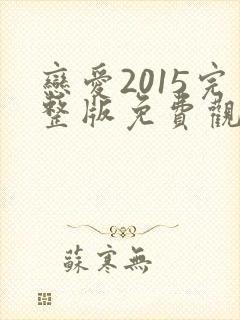 戀愛2015完
整版免費觀
蘇寒無